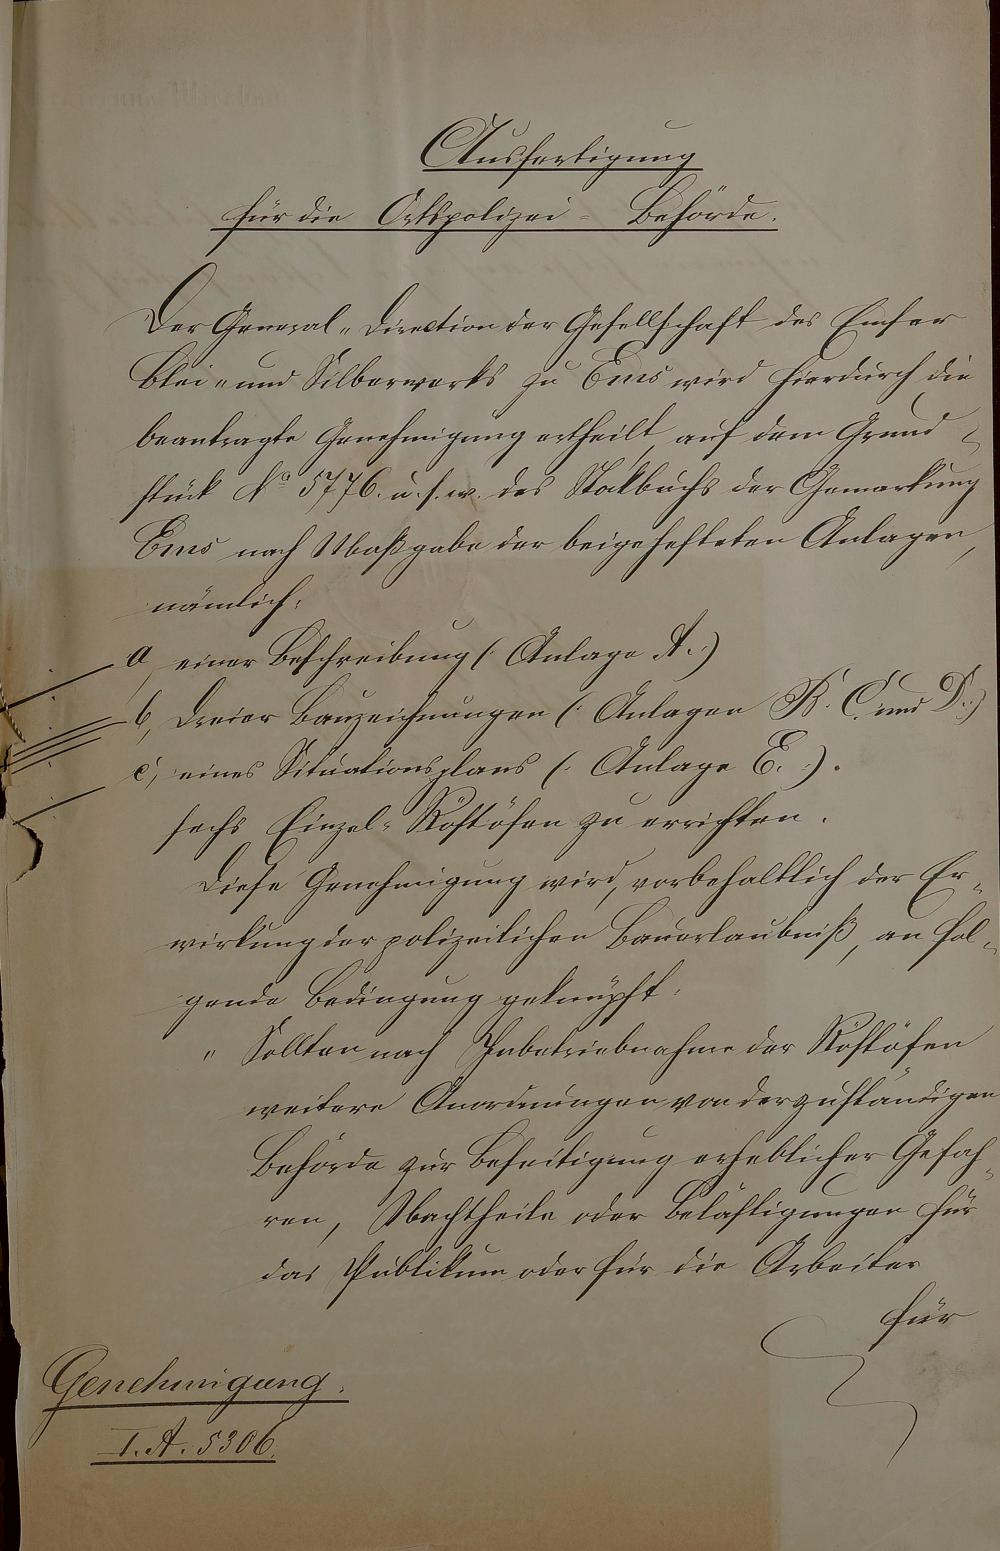 Ausfertigung
für die Ortspolizei-Behörde.
Der General-Direction der Gesellschaft des Emser
Blei- und Silberwerks zu Ems wird hierdurch die
beantragte Genehmigung ertheilt, auf dem Grund-
stück No 5776. u.s.w. des Stockbuchs der Gemarkung
Ems nach Maßgabe der beigehefteten Anlagen,
nämlich:
a, einer Beschreibung (: Anlage A. :)
b, dreier Bauzeichnungen (: Anlagen B. C. und D. :)
c, eines Situationsplans (: Anlage E. :).
sechs Einzel-Röstöfen zu errichten.
Diese Genehmigung wird, vorbehaltlich der Er-
wirkung der polizeilichen Bauerlaubniß, an fol-
gende Bedingung geknüpft:
" Sollten nach Inbetriebnahme der Röstöfen
weitere Anordnungen von der zuständigen
Behörde zur Beseitigung erheblicher Gefah-
ren, Nachtheile oder Belästigungen für
das Publikum oder für die Arbeiter
für
Genehmigung.
I. A. 5306.